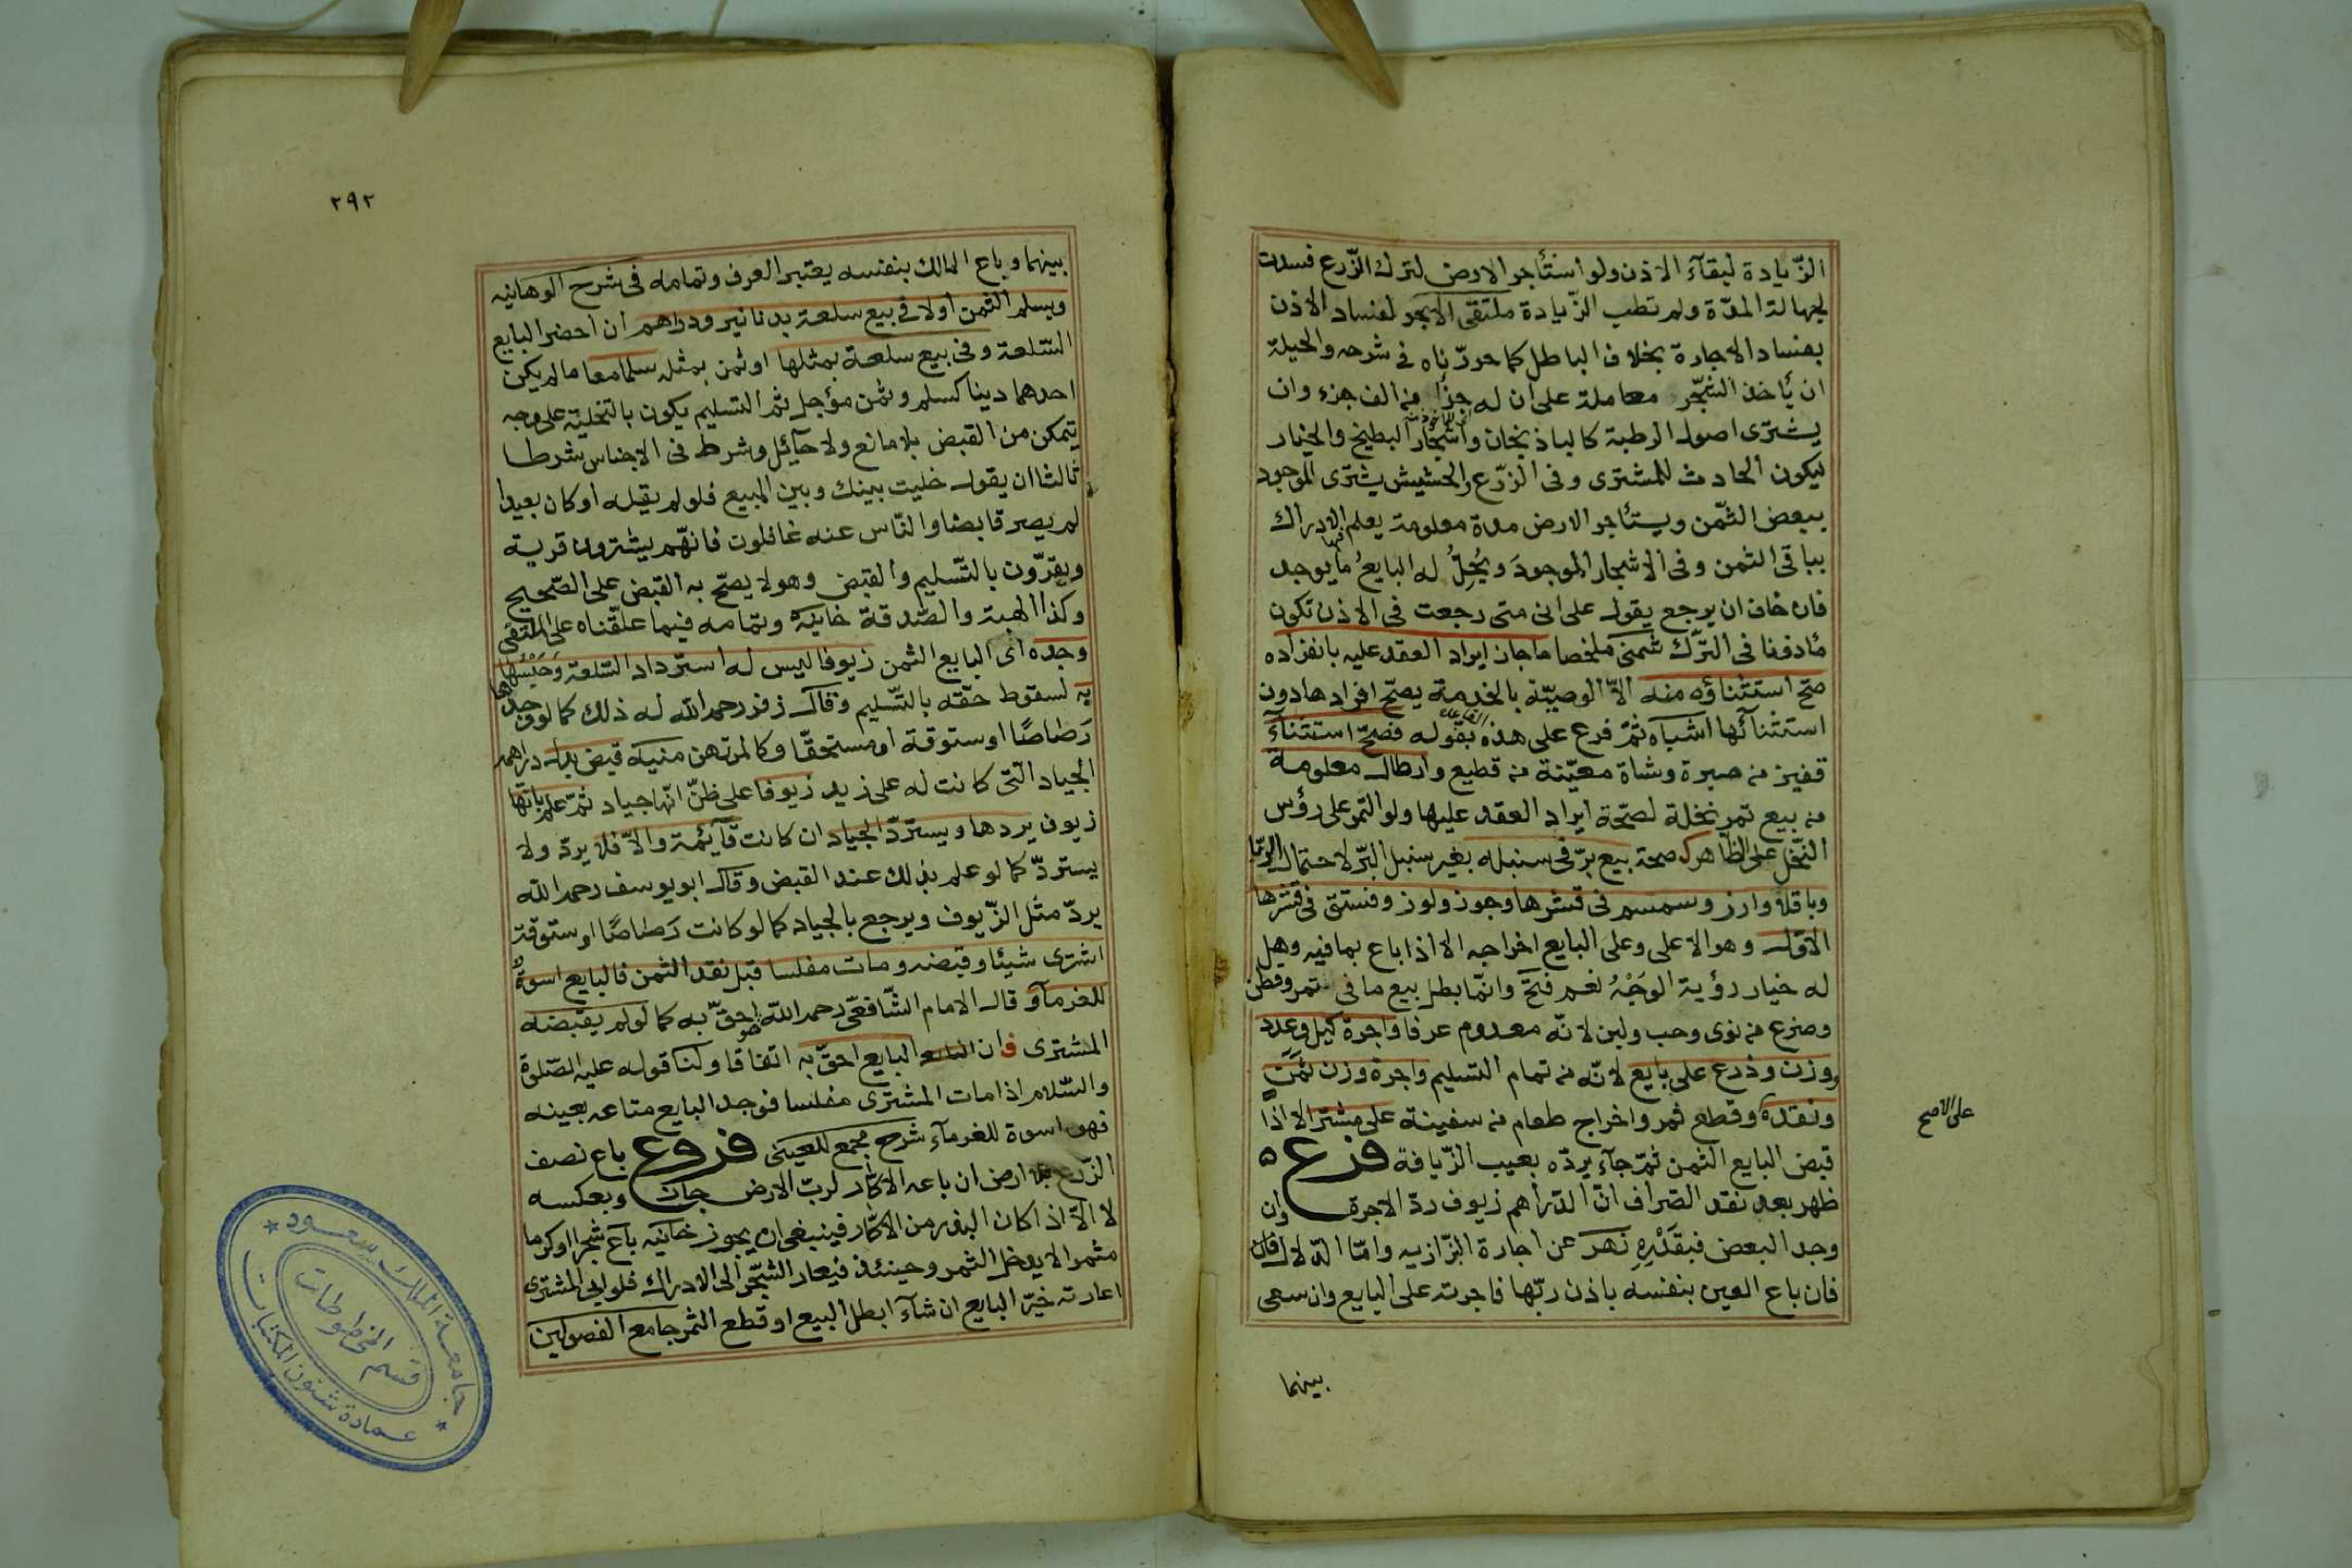 الزّيادة لبقآء الاذن ولو استأجر الارض لترك الزّرع فسدت
لجهالة المدّة ولم تطب الزّيادة ملتقى الابحر لفساد الاذن
بفساد الاجارة بخلاف الباطل كما حررّناه فى شرحه والحيلة
ان يأخذ الشجّر معاملة على ان له جزأ من الف جزء وان
يشترى اصول الرطبة كالباذنجان واشجار البطيخ والخيار
ليكون الحادث للمشترى وفى الزرّع والحشيش يشترى الموجود
ببعض الثّمن ويستأجر الارض مدة معلومة يعلم فيها الادراك
بباقى الثمن وفى الاشجار الموجودَ ويُحِلُّ له البايعُ ما يوجد
فان خاف ان يرجع يقول على انى متى رجعت فى الاذن تكون
مأذونا فى الترّك شمنى ملخصا ما جاز ايراد العقد عليه بانفراده
صّح استثناؤه منه الاّ الوصيّة بالخدمة يصّح افرادها دون
استثنائها اشباه ثمّ فرع على هذه القاعدة بقوله فصّح استثنآء
قفيز من صبرة وشاة معيّنة من قطيع وارطال معلومة
من بيع تمر نخلة لصّحة ايراد العقد عليها ولو الثمر على رؤس
النّخل على الظاهر كصحة بيع برّ فى سنبله بغير سنبل البرّ لاحتمال الربا
وباقلا وارز وسمسم فى قشرها وجوز ولوز وفستق فى قشرها
الاول وهو الاعلى وعلى البايع اخراجه الا اذا باع بما فيه وهل
له خيار رؤية الوَجْهُ نعم فتحَ وانّما بطل بيع ما فى تمر وقطن
وضرع من نوى وحب ولبن لانّه معدوم عرفا واجرة كيل وعدد
ووزن وذرع على بايع لانّه من تمام التسليم واجرة وزن ثمن
ونقده وقطع ثمر واخراج طعام من سفينة على مشتر الا اذا
على الاصح
قبض البايع الثمن ثمّ جآء يردّه بعيب الزّيافة فرع
ظهر بعد نقد الصراف انّ الدّراهم زيوف ردّ الاجرة وان
وجد البعض فبقَدْرِهِ نَهَر عن اجارة البزّازيه وامّا الدّلال فان
فان باع العين بنفسه باذن ربّها فاجرته على البايع وان سعى
بينهما
٢٩٢
بينهما وباع المالك بنفسه يعتبر العرف وتمامه فى شرح الوهبانيه
ويسلم الثمن اولا فى بيع سلعة بدنانير ودراهم ان احضر البايع
السّلعة وفى بيع سلعة بمثلها او ثمن بمثله سلما معا ما لم يكن
احدهما دينا كسلم وثمن مؤجل ثم التسليم يكون بالتخلية على وجه
يتمكن من القبض بلا مانع ولا حآئل وشرط فى الاجناس شرطا
ثالثا ان يقول خليت بينك وبين المبيع فلو لم يقله او كان بعيدا
لم يصر قابضا والنّاس عنه غافلون فانهّم يشترون قرية
ويقرّون بالتّسليم والقبض وهو لا يصّح به القبض على الصّحيح
وكذا الهبة والصّدقة خانيّه وتمامه فيما علقّناه على الملتقى
وجده اى البايع الثمن زيوفا ليس له استرداد السّلعة وَحَبْسُها
به لسقوط حقّه بالتّسليم وقال زفر رحمه الله له ذلك كما لو وجدها
رَصَاصًا او ستوقة او مستحقّا وكالمرتهن منيه قبض بدل دراهمه
الجياد الّتى كانت له على زيد زيوفا على ظنّ انّها جياد ثمّ علم بانّها
زيوف يردها ويستردّ الجياد ان كانت قآئمة والاّ فلا يردّ ولا
يستردّ كما لو علم بذلك عند القبض وقال ابو يوسف رحمه الله
يردّ مثل الزّيوف ويرجع بالجياد كما لو كانت رَصَاصًا او ستوقة
اشترى شيئا وقبضه ومات مفلسا قبل نقد الثمن فالبايع اسوةٌ
للغرمآء وقال الامام الشّافعّى رحمه الله هو احقّ به كما لو لم يقبضه
المشترى فان البايع احقّ به اتفاقا ولنا قوله عليه الصّلوة
والسّلام اذا مات المشترى مفلسا فوجد البايع متاعه بعينه
فهو اسوة للغرمآء شرح مجمع للعينى فروع باع نصف
الزّرع بلا ارض ان باعه الاكّار لربّ الارض جاز وبعكسه
لا الاّ اذا كان البذر من الاكّار فينبغى ان يجوز خانيّه باع شجرا او كرما
مثمرا لا يدخل الثمر وحينئذ فيعار الشّجر الى الادراك فلو ابى المشترى
اعارته خيرّ البايع ان شآء ابطل البيع او قطع الثمر جامع الفصولين
جامعة الملك سعود
قسم المخطوطات
عمادة شئون المكتبات